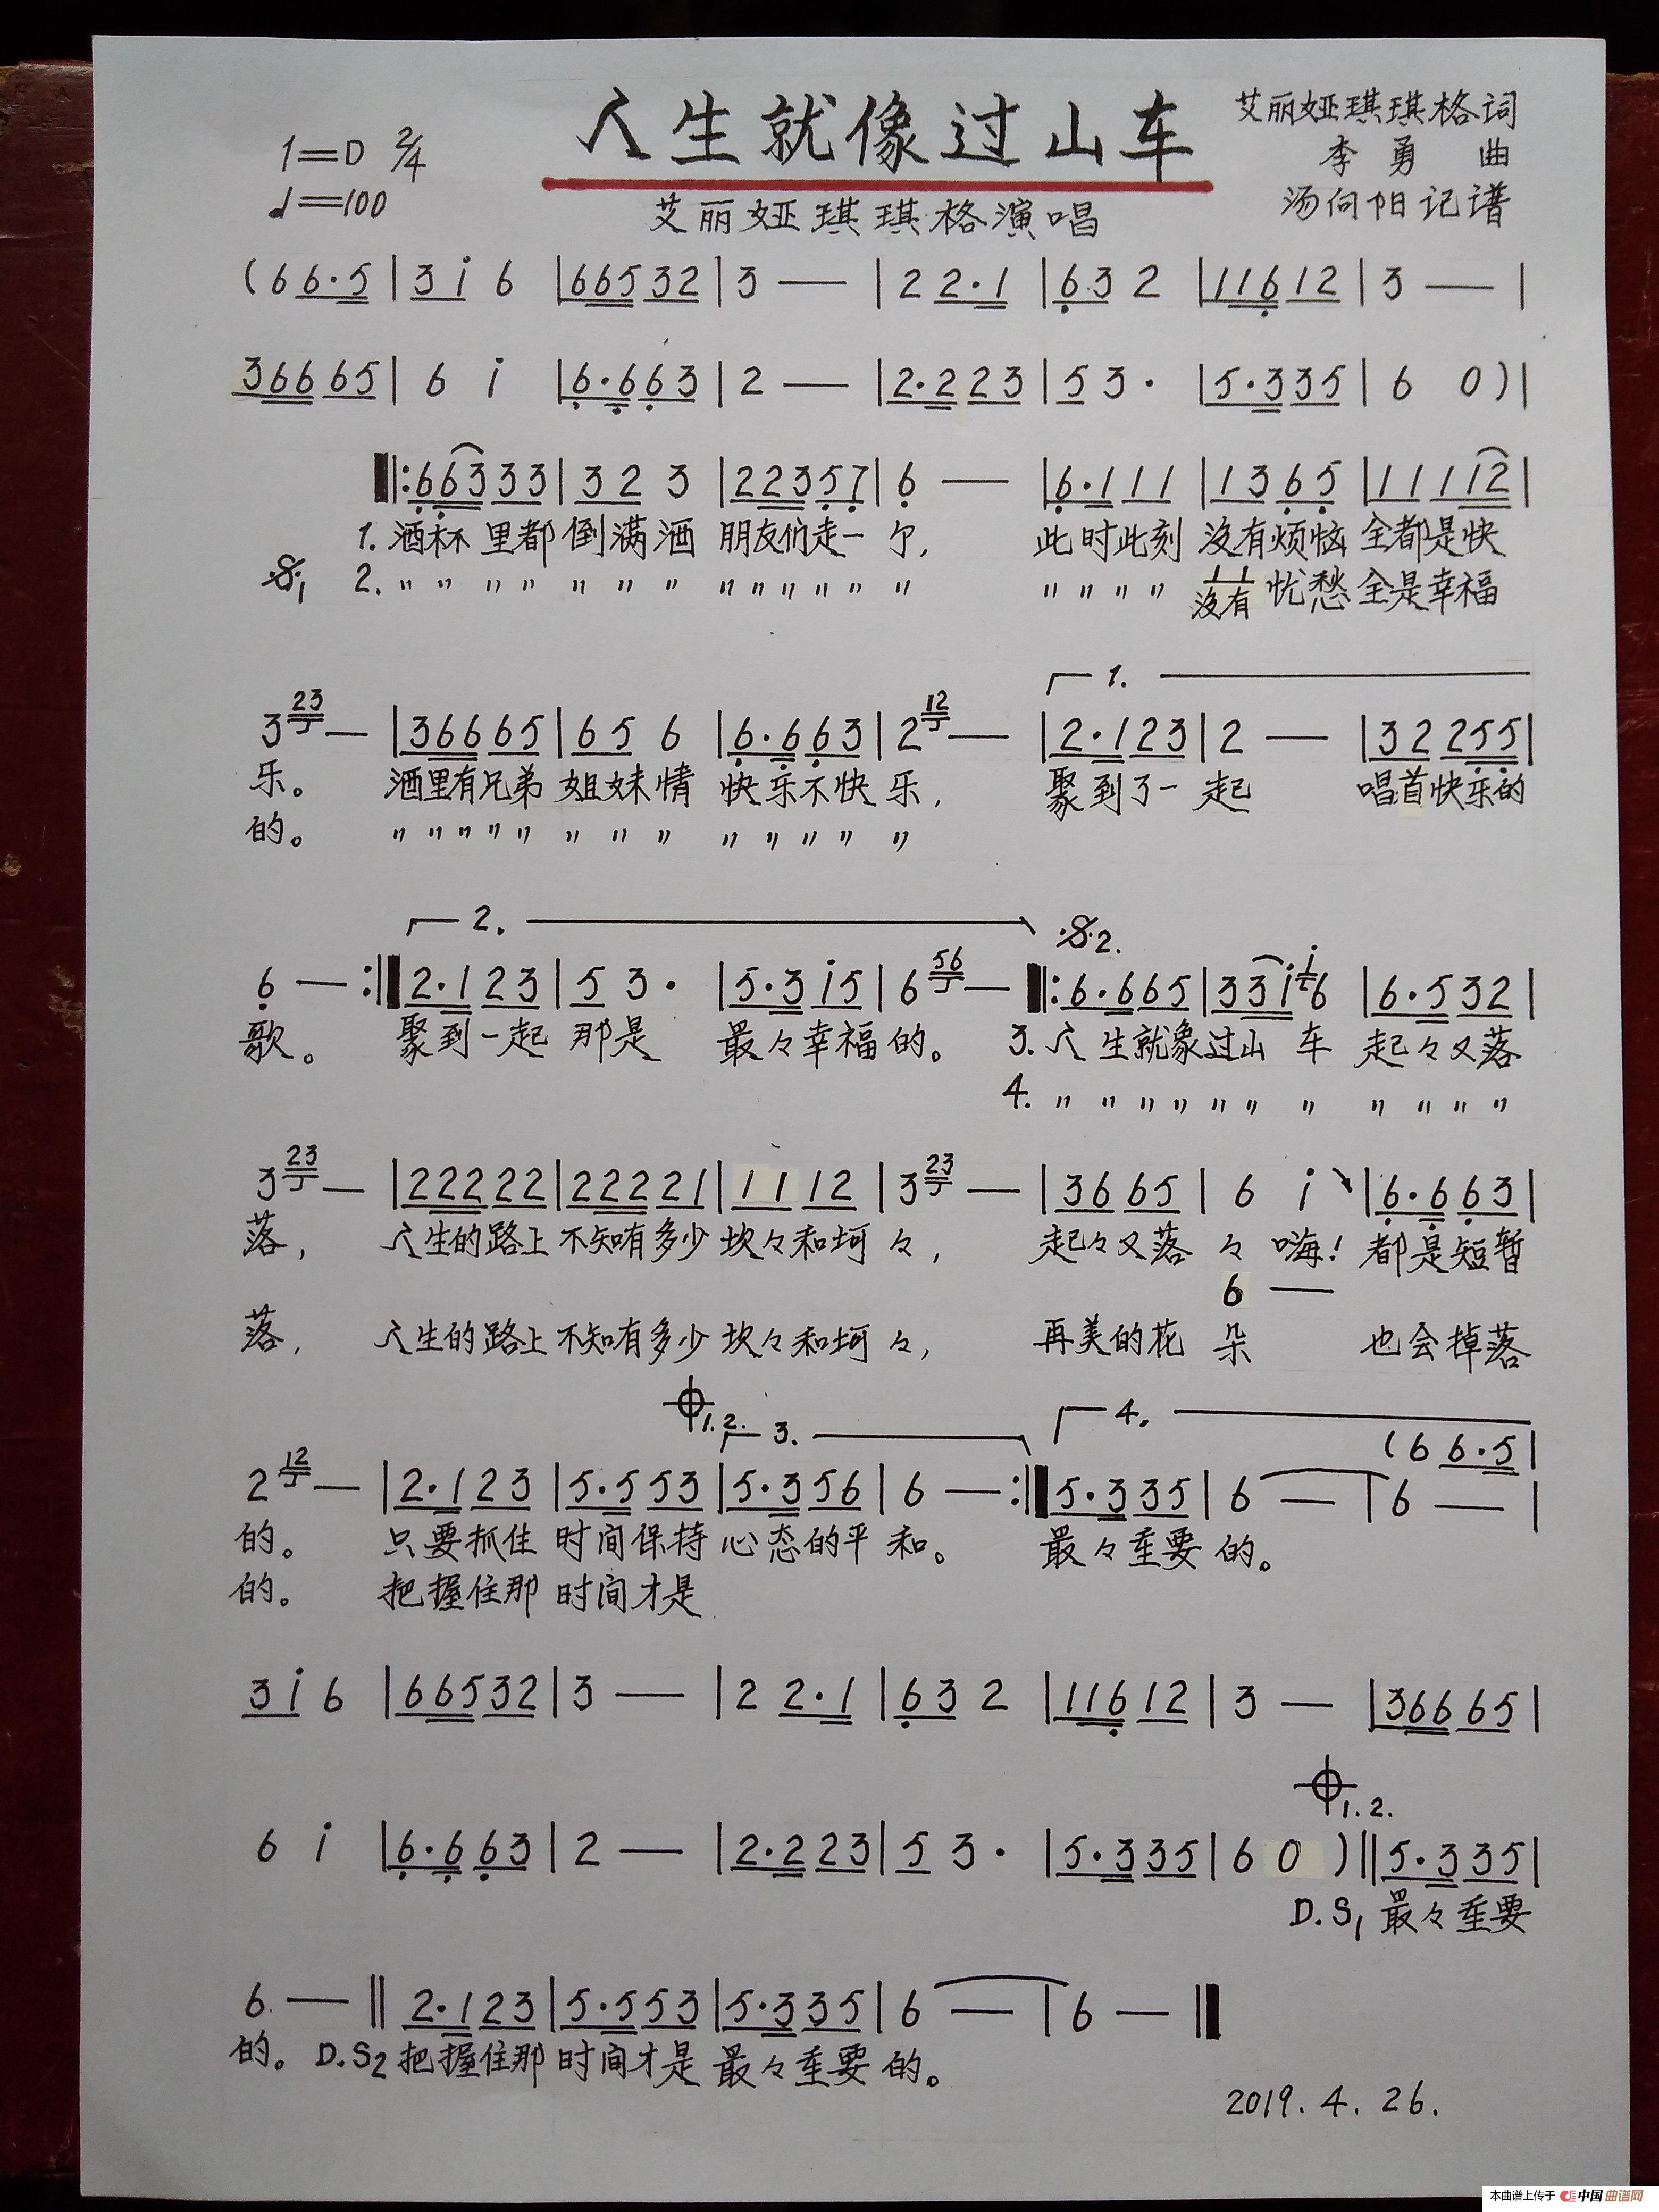 人生就像过山车
艾丽娅琪琪格词
1=D 2/4
李勇 曲
♩=100
汤向阳记谱
艾丽娅琪琪格演唱
(6 6·5 | 3 i 6 | 66532 | 3 — | 2 2·1 | 63 2 | 11612 | 3 — |
36665 | 6 i | 6·663 | 2 — | 2·223 | 5 3· | 5·335 | 6 0) |
‖:66333 | 32 3 | 22357 | 6 — | 6·111 | 1365 | 11112 |
1. 酒杯里都倒满酒 朋友们走一个, 此时此刻 没有烦恼 全都是快
𝄋1 2. 〃〃〃〃〃〃〃 〃〃〃〃〃〃 〃〃〃〃 没有忧愁 全是幸福
┌─ 1. ───
3 23 — | 36665 | 65 6 | 6·663 | 2 12 — | 2·123 | 2 — | 32255 |
乐。 酒里有兄弟 姐妹情 快乐不快乐, 聚到了一起 唱首快乐的
的。 〃〃〃〃〃 〃〃〃 〃〃〃〃〃
┌─ 2. ───┐ 𝄋2.
6 — :‖ 2·123 | 5 3· | 5·3i5 | 6 56 — ‖: 6·665 | 33i i6 | 6·532 |
歌。 聚到一起 那是 最々幸福的。 3. 人生就象过山车 起々又落
4. 〃〃〃〃〃〃〃 〃〃〃〃
3 23 — | 22222 | 22221 | 1112 | 3 23 — | 3665 | 6 i | 6·663 |
落, 人生的路上 不知有多少 坎々和坷々, 起々又落々 嗨! 都是短暂
6 —
落, 人生的路上 不知有多少 坎々和坷々, 再美的花朵 也会掉落
𝄌1.2. ┌─ 3. ───┐ ┌─ 4. ───
(6 6·5 |
2 12 — | 2·123 | 5·553 | 5·356 | 6 — :‖ 5·335 | 6 — | 6 — |
的。 只要抓住 时间保持 心态的平和。 最々重要的。
的。 把握住那 时间才是
3 i 6 | 66532 | 3 — | 2 2·1 | 63 2 | 11612 | 3 — | 36665 |
𝄌1.2.
6 i | 6·663 | 2 — | 2·223 | 5 3· | 5·335 | 6 0 ) ‖ 5·335 |
D.S1 最々重要
6 — ‖ 2·123 | 5·553 | 5·335 | 6 — | 6 — ‖
的。 D.S2 把握住那 时间才是 最々重要的。
2019.4.26.
本曲谱上传于 中国曲谱网